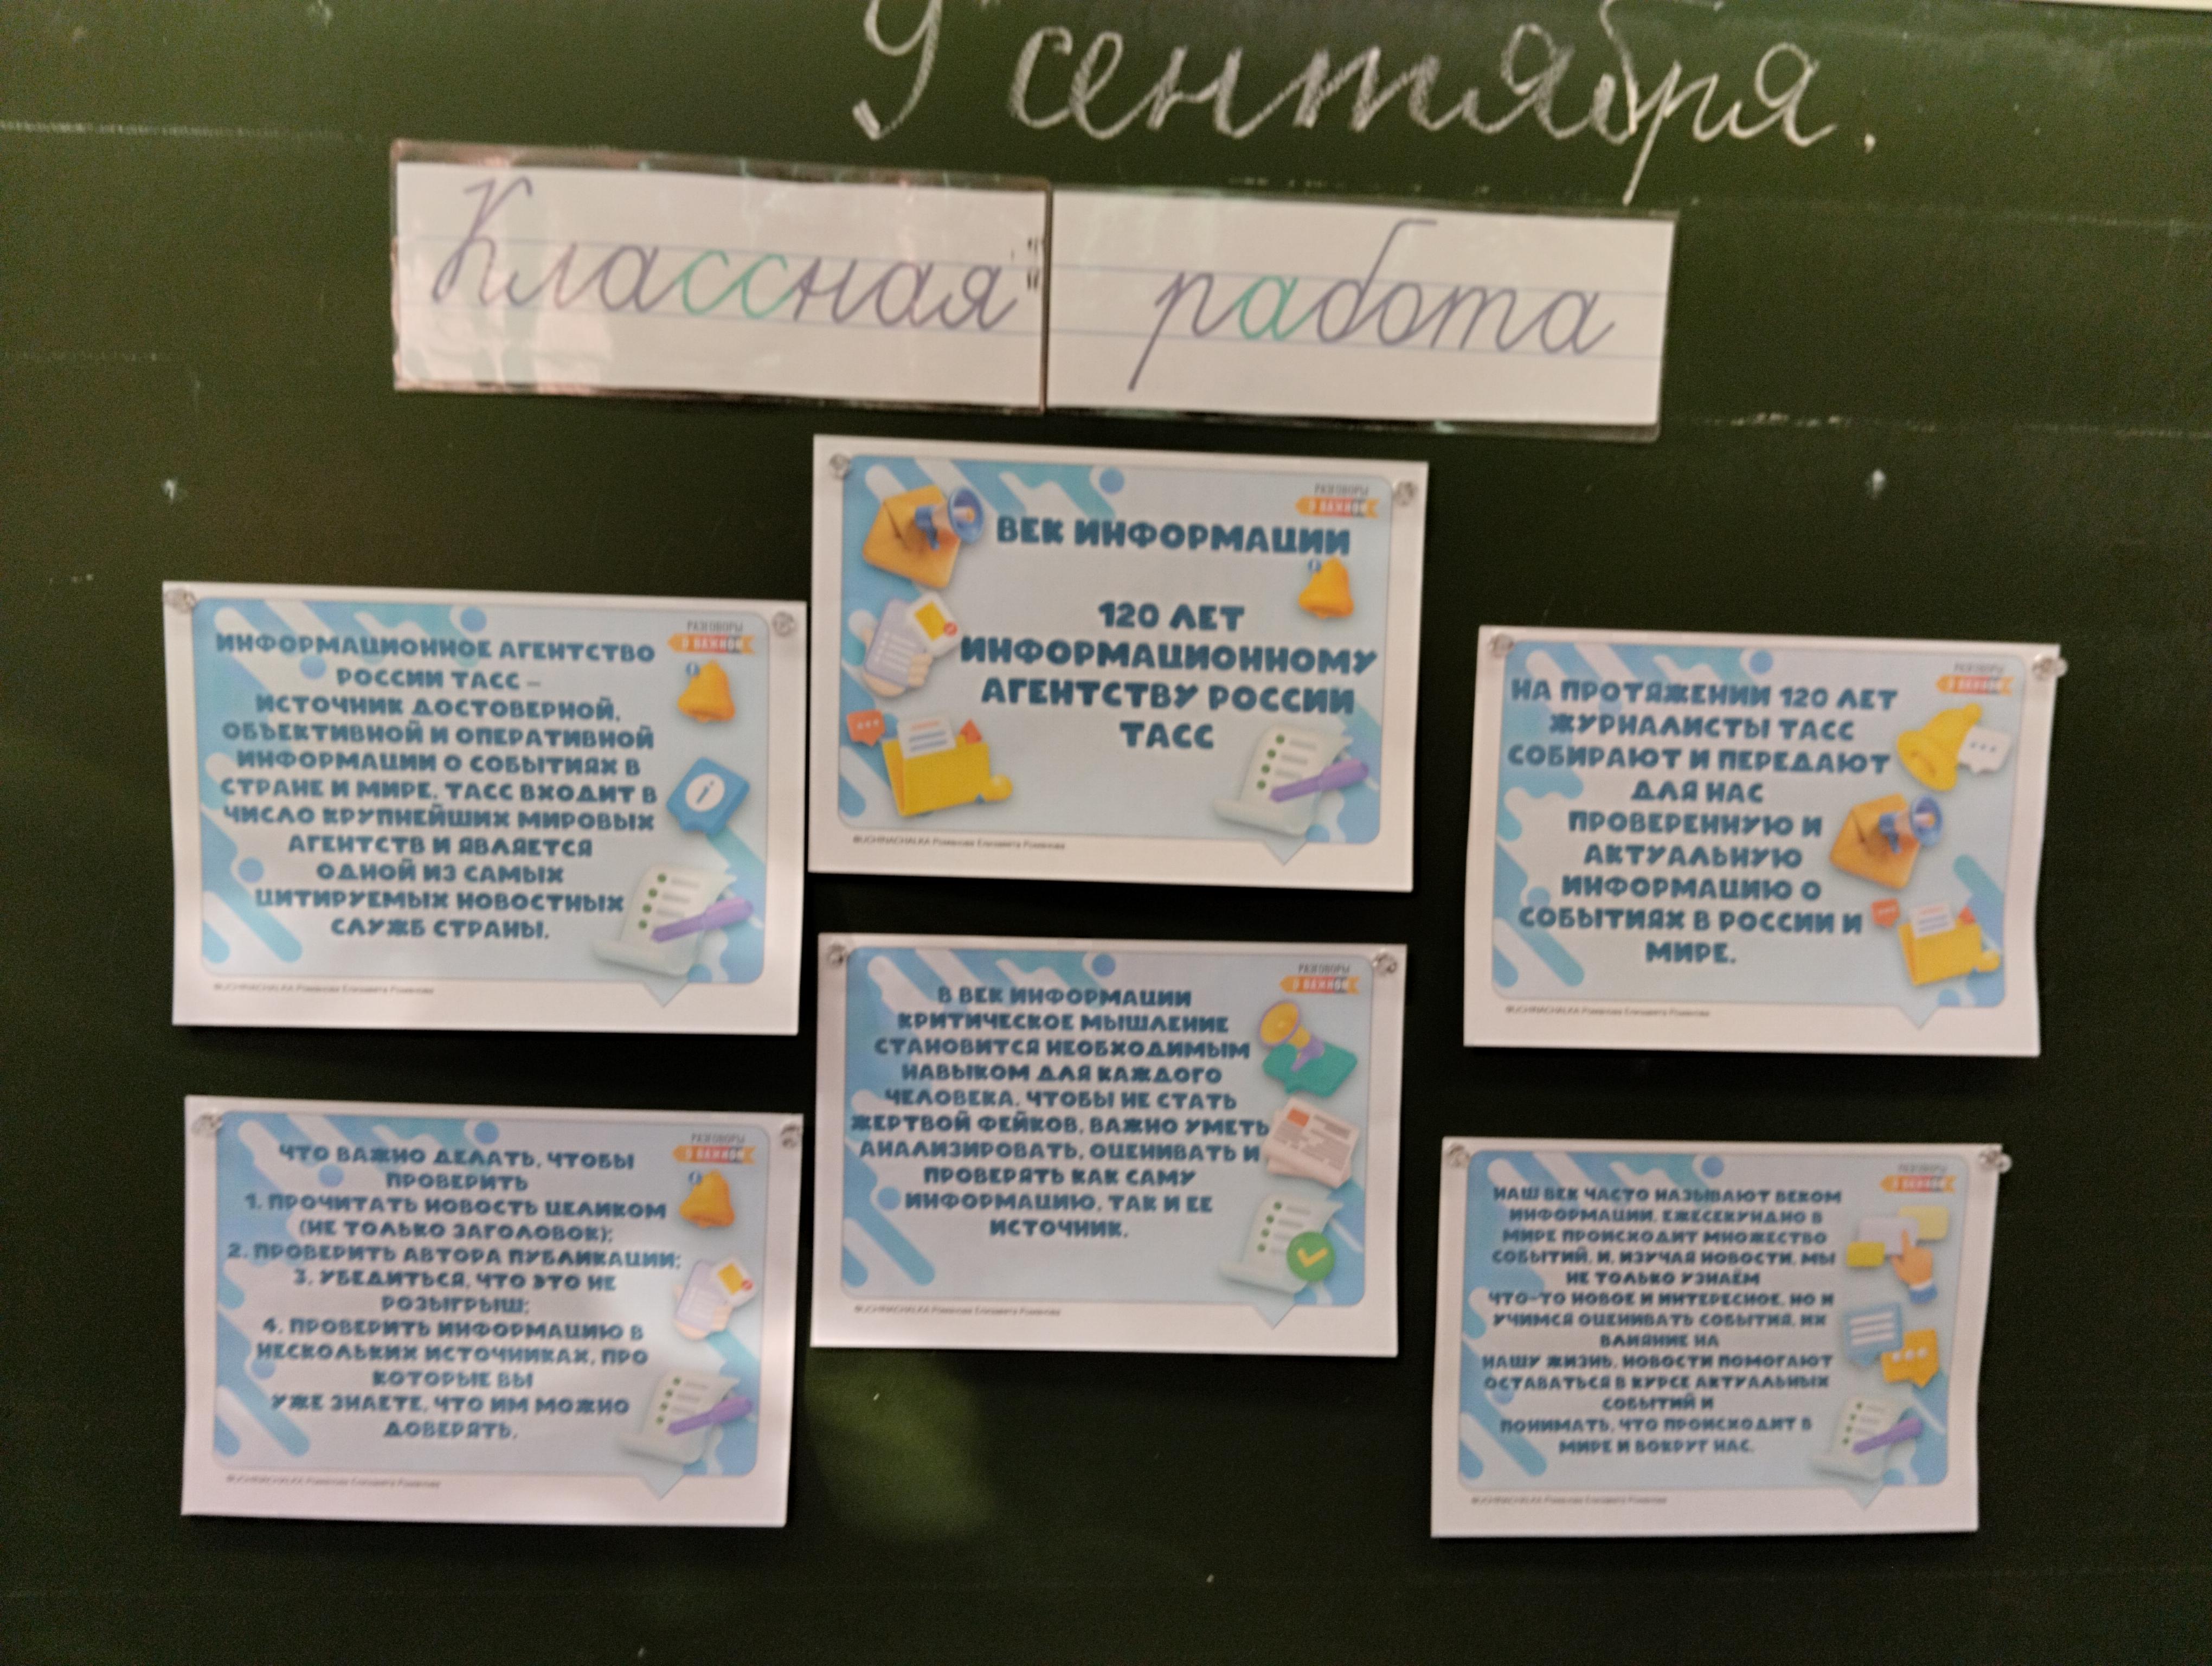 9 сентября.
Классная работа
РАЗГОВОРЫ
О ВАЖНОМ
ВЕК ИНФОРМАЦИИ
120 ЛЕТ
ИНФОРМАЦИОННОМУ
АГЕНТСТВУ РОССИИ
ТАСС
©UCHINACHALKA Романова Елизавета Романовна
РАЗГОВОРЫ
О ВАЖНОМ
ИНФОРМАЦИОННОЕ АГЕНТСТВО
РОССИИ ТАСС –
ИСТОЧНИК ДОСТОВЕРНОЙ,
ОБЪЕКТИВНОЙ И ОПЕРАТИВНОЙ
ИНФОРМАЦИИ О СОБЫТИЯХ В
СТРАНЕ И МИРЕ. ТАСС ВХОДИТ В
ЧИСЛО КРУПНЕЙШИХ МИРОВЫХ
АГЕНТСТВ И ЯВЛЯЕТСЯ
ОДНОЙ ИЗ САМЫХ
ЦИТИРУЕМЫХ НОВОСТНЫХ
СЛУЖБ СТРАНЫ.
РАЗГОВОРЫ
О ВАЖНОМ
НА ПРОТЯЖЕНИИ 120 ЛЕТ
ЖУРНАЛИСТЫ ТАСС
СОБИРАЮТ И ПЕРЕДАЮТ
ДЛЯ НАС
ПРОВЕРЕННУЮ И
АКТУАЛЬНУЮ
ИНФОРМАЦИЮ О
СОБЫТИЯХ В РОССИИ И
МИРЕ.
РАЗГОВОРЫ
О ВАЖНОМ
В ВЕК ИНФОРМАЦИИ
КРИТИЧЕСКОЕ МЫШЛЕНИЕ
СТАНОВИТСЯ НЕОБХОДИМЫМ
НАВЫКОМ ДЛЯ КАЖДОГО
ЧЕЛОВЕКА. ЧТОБЫ НЕ СТАТЬ
ЖЕРТВОЙ ФЕЙКОВ, ВАЖНО УМЕТЬ
АНАЛИЗИРОВАТЬ, ОЦЕНИВАТЬ И
ПРОВЕРЯТЬ КАК САМУ
ИНФОРМАЦИЮ, ТАК И ЕЕ
ИСТОЧНИК.
РАЗГОВОРЫ
О ВАЖНОМ
ЧТО ВАЖНО ДЕЛАТЬ, ЧТОБЫ
ПРОВЕРИТЬ
1. ПРОЧИТАТЬ НОВОСТЬ ЦЕЛИКОМ
(НЕ ТОЛЬКО ЗАГОЛОВОК);
2. ПРОВЕРИТЬ АВТОРА ПУБЛИКАЦИИ;
3. УБЕДИТЬСЯ, ЧТО ЭТО НЕ
РОЗЫГРЫШ;
4. ПРОВЕРИТЬ ИНФОРМАЦИЮ В
НЕСКОЛЬКИХ ИСТОЧНИКАХ, ПРО
КОТОРЫЕ ВЫ
УЖЕ ЗНАЕТЕ, ЧТО ИМ МОЖНО
ДОВЕРЯТЬ.
РАЗГОВОРЫ
О ВАЖНОМ
НАШ ВЕК ЧАСТО НАЗЫВАЮТ ВЕКОМ
ИНФОРМАЦИИ. ЕЖЕСЕКУНДНО В
МИРЕ ПРОИСХОДИТ МНОЖЕСТВО
СОБЫТИЙ, И, ИЗУЧАЯ НОВОСТИ, МЫ
НЕ ТОЛЬКО УЗНАЁМ
ЧТО-ТО НОВОЕ И ИНТЕРЕСНОЕ, НО И
УЧИМСЯ ОЦЕНИВАТЬ СОБЫТИЯ, ИХ
ВЛИЯНИЕ НА
НАШУ ЖИЗНЬ. НОВОСТИ ПОМОГАЮТ
ОСТАВАТЬСЯ В КУРСЕ АКТУАЛЬНЫХ
СОБЫТИЙ И
ПОНИМАТЬ, ЧТО ПРОИСХОДИТ В
МИРЕ И ВОКРУГ НАС.